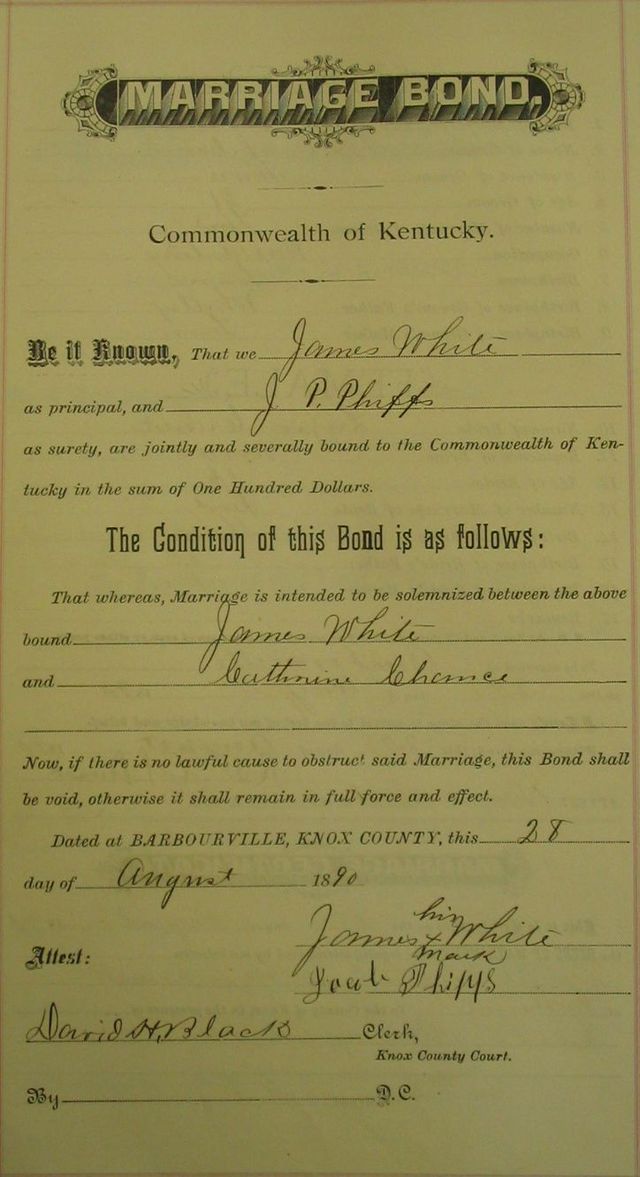 MARRIAGE BOND,
Commonwealth of Kentucky.
Be it Known, That we James White
as principal, and J P. Phiffs
as surety, are jointly and severally bound to the Commonwealth of Ken-
tucky in the sum of One Hundred Dollars.
The Condition of this Bond is as follows:
That whereas, Marriage is intended to be solemnized between the above
bound James White
and Cathrine Chance
Now, if there is no lawful cause to obstruct said Marriage, this Bond shall
be void, otherwise it shall remain in full force and effect.
Dated at BARBOURVILLE, KNOX COUNTY, this 28
day of August 1890
his
James x White
mark
Attest:
Phipps
David H. Black Clerk,
Knox County Court.
By D.C.